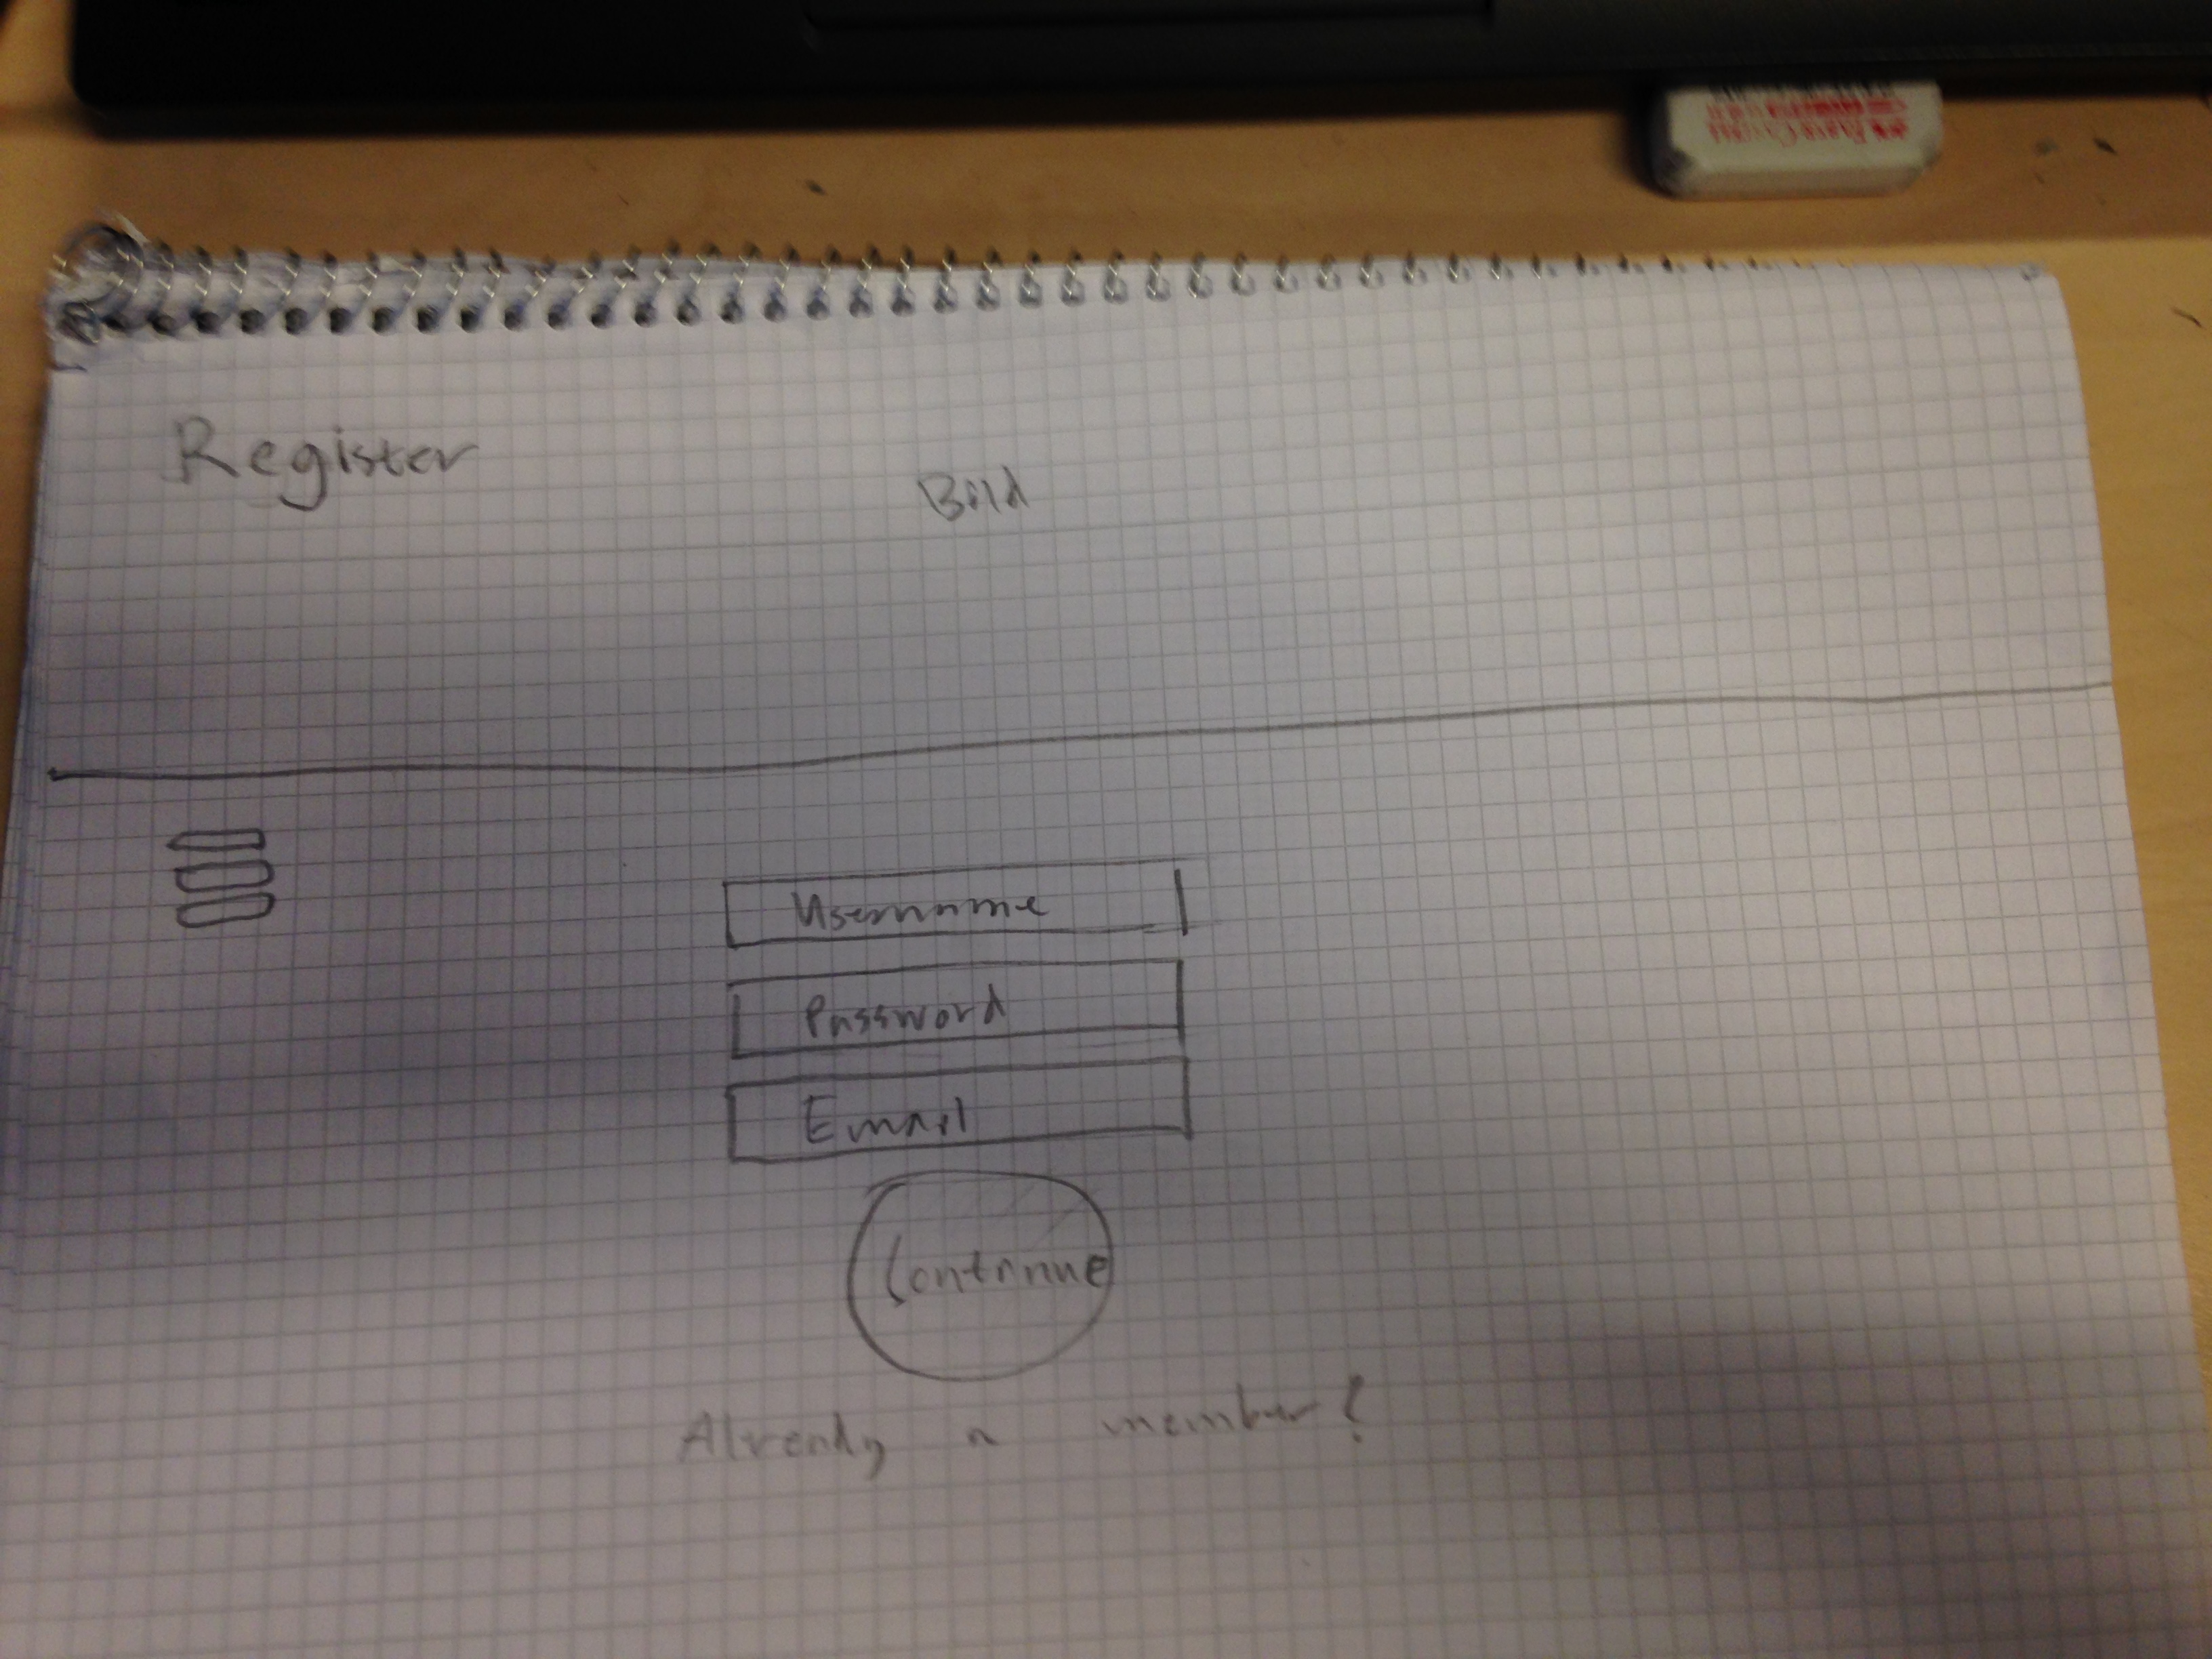 Register
Bild
Username
Password
Email
Continue
Already a member?
FABER-CASTELL